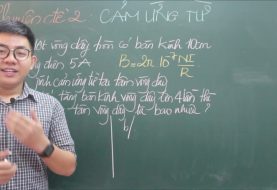 Chuyên đề 2: CẢM ỨNG TỪ
Một vòng dây tròn có bán kính 10cm
điện 5A B=2π 10⁻⁷ NI/R
tính cảm ứng từ tại tâm vòng dây
tăng bán kính vòng dây lên 4 lần thì
tâm vòng dây là bao nhiêu?